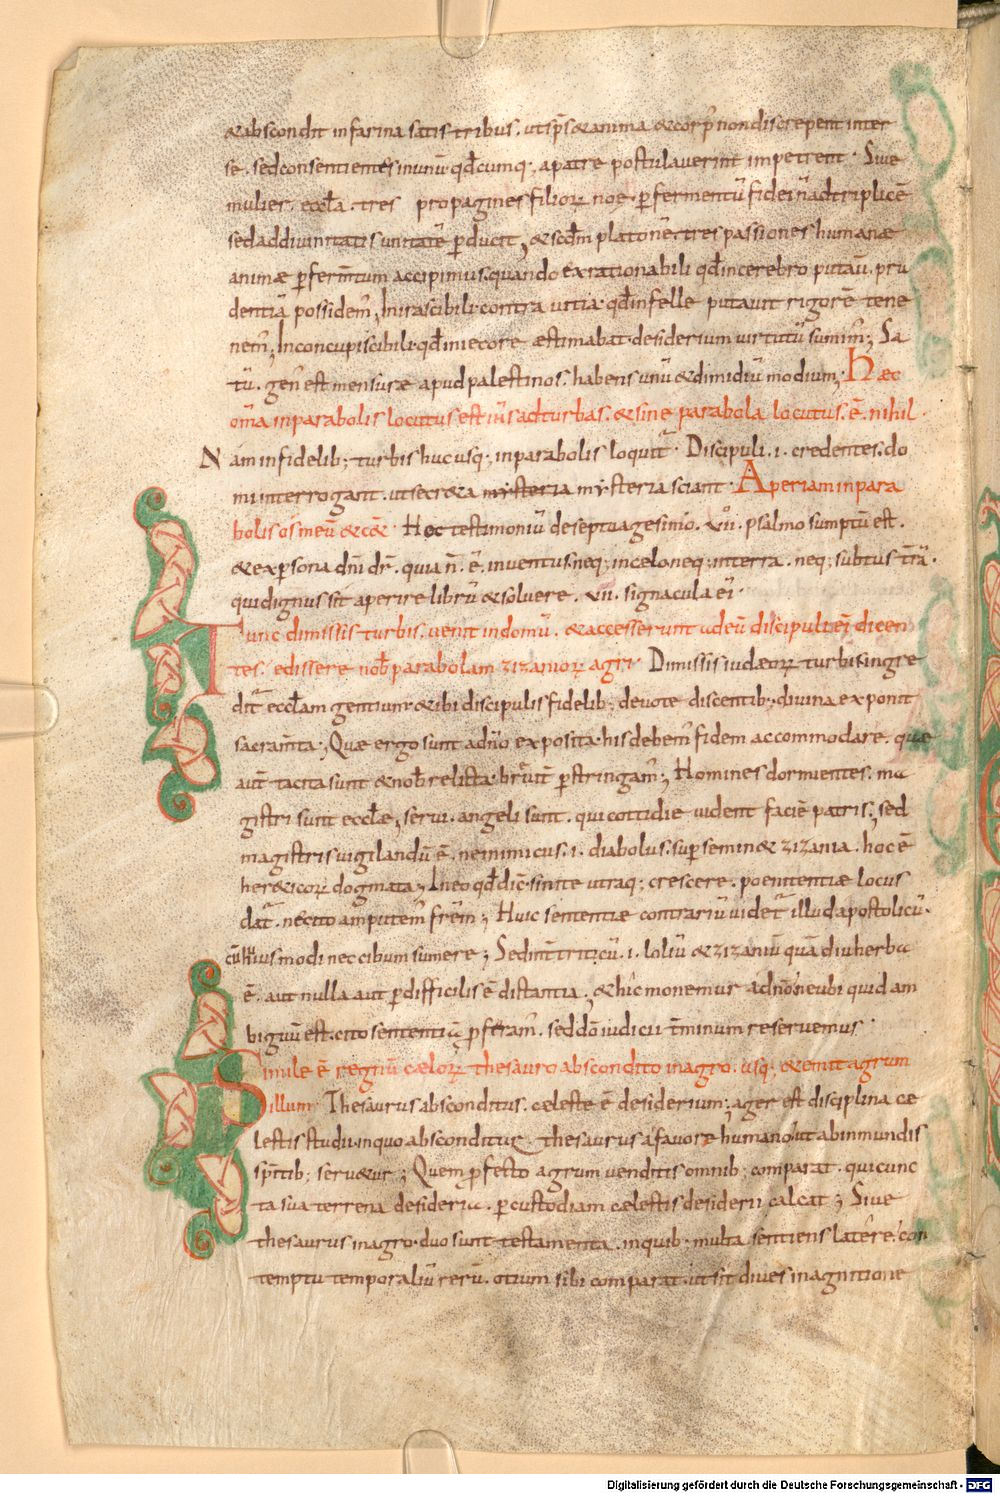 &abscondit infarina satis tribus. utsp̄s&anima &corꝑ nondiscrepent inter
se. sedconsentientes inunū q̄dcumq; apatre postulaverint impetrent. Sive
mulier. eccl̄a. tres propagines filioꝝ noe. ꝑfermentū fidei nadtriplicē
sedaddivinitatis unitatē ꝑducit, &scd̄m platonē. tres passiones humanæ
animæ ꝑferm̄tum accipimus. quando exrationabili q̄dincerebro putaū. pru
dentiā possidem̄, Inirascibili. contra vitia. q̄dinfelle putavit rigorē tene
nem̄; Inconcupiscibili. q̄diniecore æstimabat. desiderium virtutū sumim̄; Sa
tū. gen̄ est mensuræ apud palestinos. habens unū &dimidiū modium; Hæc
om̄a inparabolis locutus est iħs adturbas. &sine parabola locutus. ē. nihil.
Nam infidelib; turbis huc usq; inparabolis loquit᷑. Discipuli. i. credentes. do
mi interrogant. utsecr&a mysteria mysteria sciant. Aperiam inpara
bolis os meū &c̄æ Hoc testimoniū deseptuagesimo. vııo. psalmo sumptū est.
&expersona dn̄i dr̄. quia n̄. ē. inventus. neq; incelo neq; interra. neq; subtus t̄rā.
qui dignus sit aperire librū &solvere. vıı. signacula ei᷒.
Tunc dimissis turbis. venit indomū. &accesserunt adeū discipuli ei᷒ dicen
tes. edissere nob̄ parabolam zizanioꝝ agri. Dimissis iudæoꝝ turbis ingre
dit᷑ eccl̄am gentium. &ibi discipulis fidelib; devote discentib; divina exponit
sacram̄ta; Quæ ergo sunt adn̄o exposita. his debem̄ fidem accommodare. quæ
aut̄ tacita sunt &nob̄ relicta. brevit̄ ꝑstringam̄; Homines dormientes. ma
gistri sunt eccl̄æ, servi. angeli sunt. qui cottidie vident faciē patris, sed
magistris vigilandū ē. ne inimicus. i. diabolus. suꝑsemin& zizania. hoc ē
her&icoꝝ dogmata; Ineo q̄d dic̄. sinite utraq; crescere. poenitentiæ locus
dat᷑. nec cito amputem̄ fr̄em; Huic sententiæ contrariū videt᷑ illud apostolicū.
cū huius modi nec cibum sumere; Sed int̄ triticū. i. loliū &zizaniū quādiu herba
ē. aut nulla aut ꝑdifficilis ē distantia, &hic monemur adn̄o ne ubi quid am
biguū est. cito sententiā ꝑferam̄. sed dō iudicii t̄minum reservemus.
Simile ē regnū cæloꝝ thesauro abscondito inagro. usq; &emit agrum
illum. Thesaurus absconditus. cæleste ē desiderium; ager est disciplina cæ
lestis studii. inquo absconditur. thesaurus a favore humano ut ab inmundis
sp̄ritib; serv&ur; Quem ꝑfecto agrum venditis omnib; comparat. qui cunc
ta sua terrena desideria. ꝑ custodiam cælestis desiderii calcat; Sive
thesaurus inagro. duo sunt testamenta. inquib; multa sentiens latere. con
temptu temporaliū rerū. otium sibi comparat. ut sit dives inagnitione
Digitalisierung gefördert durch die Deutsche Forschungsgemeinschaft - DFG